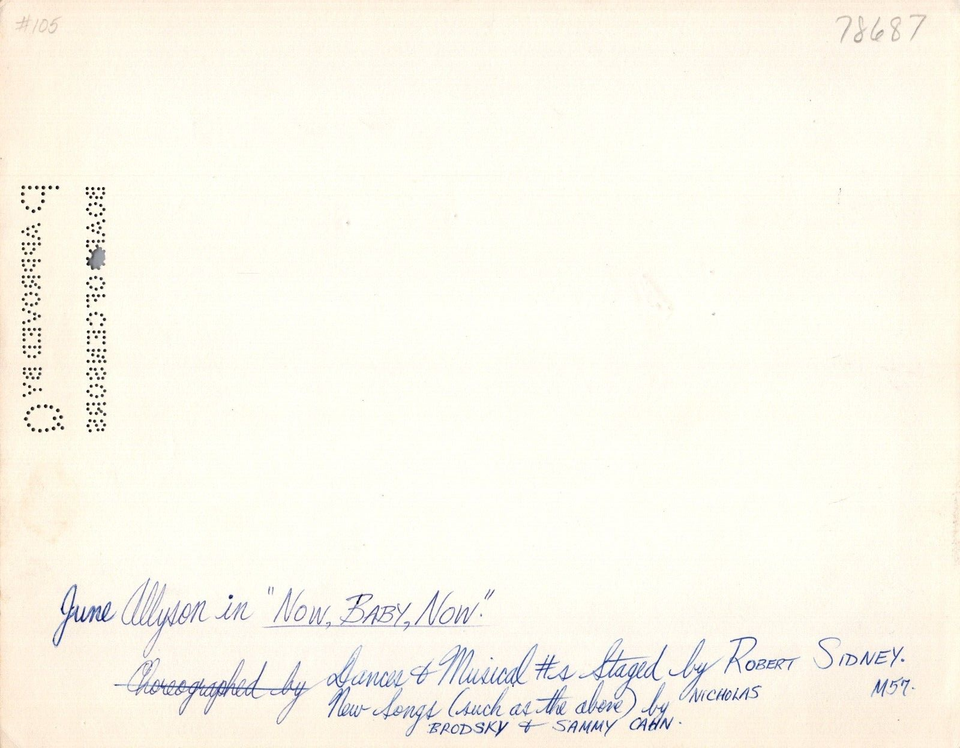 #105
78687
APPROVED BY
June Allyson in "Now, Baby, Now."
Choreographed by Dances & Musical #s Staged by ROBERT SIDNEY.
New Songs (such as the above) by NICHOLAS M57.
BRODSKY & SAMMY CAHN.